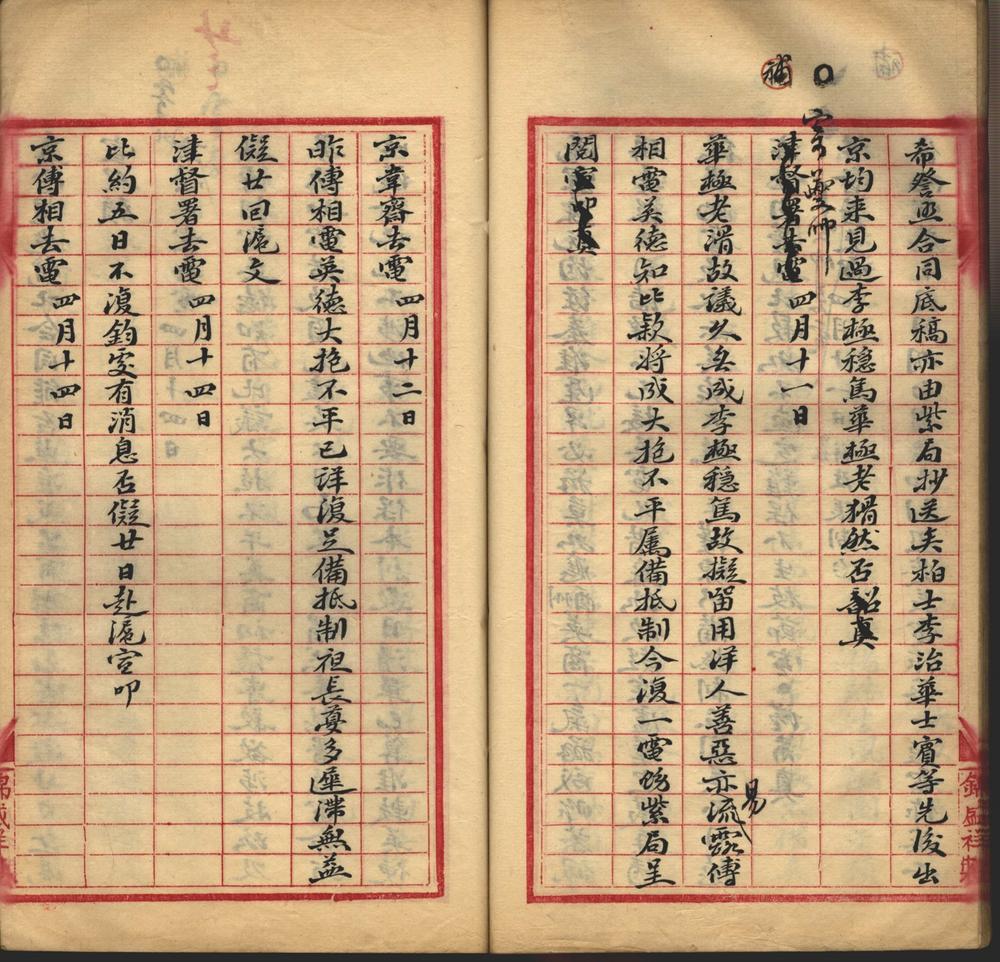 補
希營丞合同底稿亦由紫局抄送夫柏士李治華士賓等先後出
京均来見過李極穩篤華極老猾然否韶真
津督署去電四月十一日
華極老滑故議久无成李極穩篤故擬留用洋人善惡亦易流露傅
相電英德知比款將成大抱不平属備抵制今復一電飭紫局呈
閱宣叩真
京韋齋去電四月十二日
昨傅相電英德大抱不平已详復足備抵制祖長蔓多遲滯無益
儗廿回滬文
津督署去電四月十四日
比約五日不復鈞處有消息否儗廿日赴滬宣叩
京傅相去電四月十四日